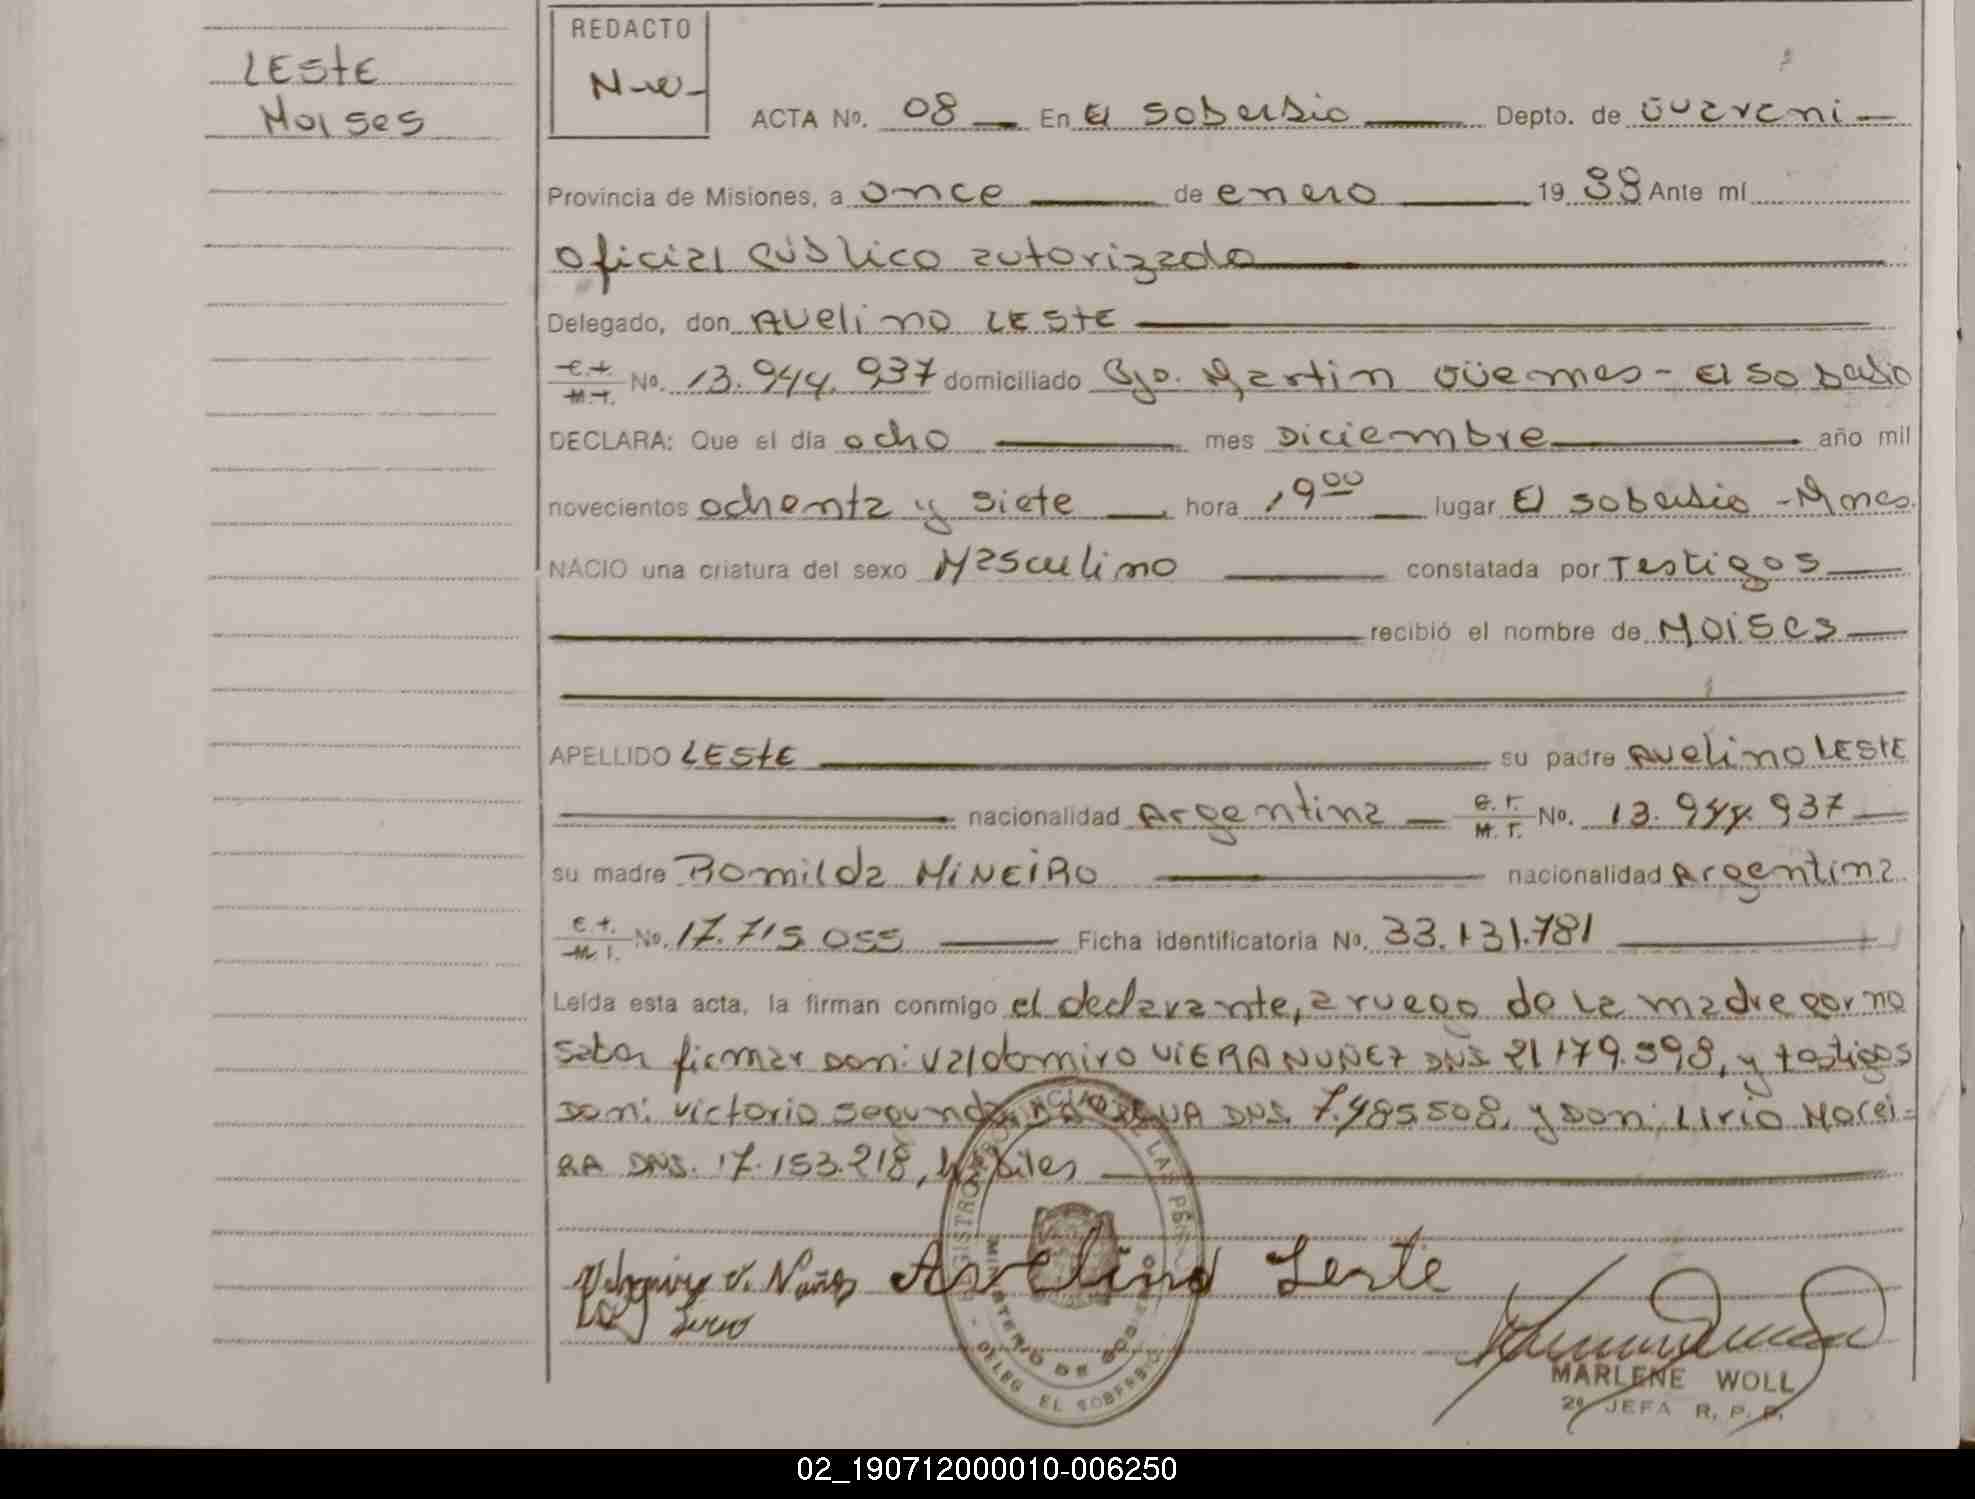 LESTE
Moises
REDACTO
N-w-
ACTA No. 08 En El Soberbio Depto. de Guarani
Provincia de Misiones, a once de enero 19 88 Ante mí
oficial público autorizado
Delegado, don Avelino LESTE
C.I. M.I. No. 13.944.937 domiciliado Bjo. Martin Güemes - El Soberbio
DECLARA: Que el día ocho mes Diciembre año mil
novecientos ochenta y siete hora 19 00 lugar El Soberbio - Mnes.
NACIO una criatura del sexo Masculino constatada por Testigos
recibió el nombre de MOISES
APELLIDO LESTE su padre Avelino LESTE
nacionalidad Argentina C.I. M.I. No. 13.944.937
su madre Romilda MINEIRO nacionalidad Argentina
C.I. M.I. No. 17.715.055 Ficha identificatoria No. 33.131.781
Leída esta acta, la firman conmigo el declarante, a ruego de la madre por no
saber firmar Don: Valdomiro VIERA NUÑEZ DNI 21.179.598, y testigos
Don: Victorio Segundo DA SILVA DNI. 7.485.508, y Don: Lirio Morei-
RA DNI. 17.153.218, hábiles
V. Nuñez Avelino Leste
REGISTRO DE LAS
MINISTERIO DE GOB
- DELEG EL SOBERBIO -
MARLENE WOLL
2º JEFA R. P. P.
02_190712000010-006250